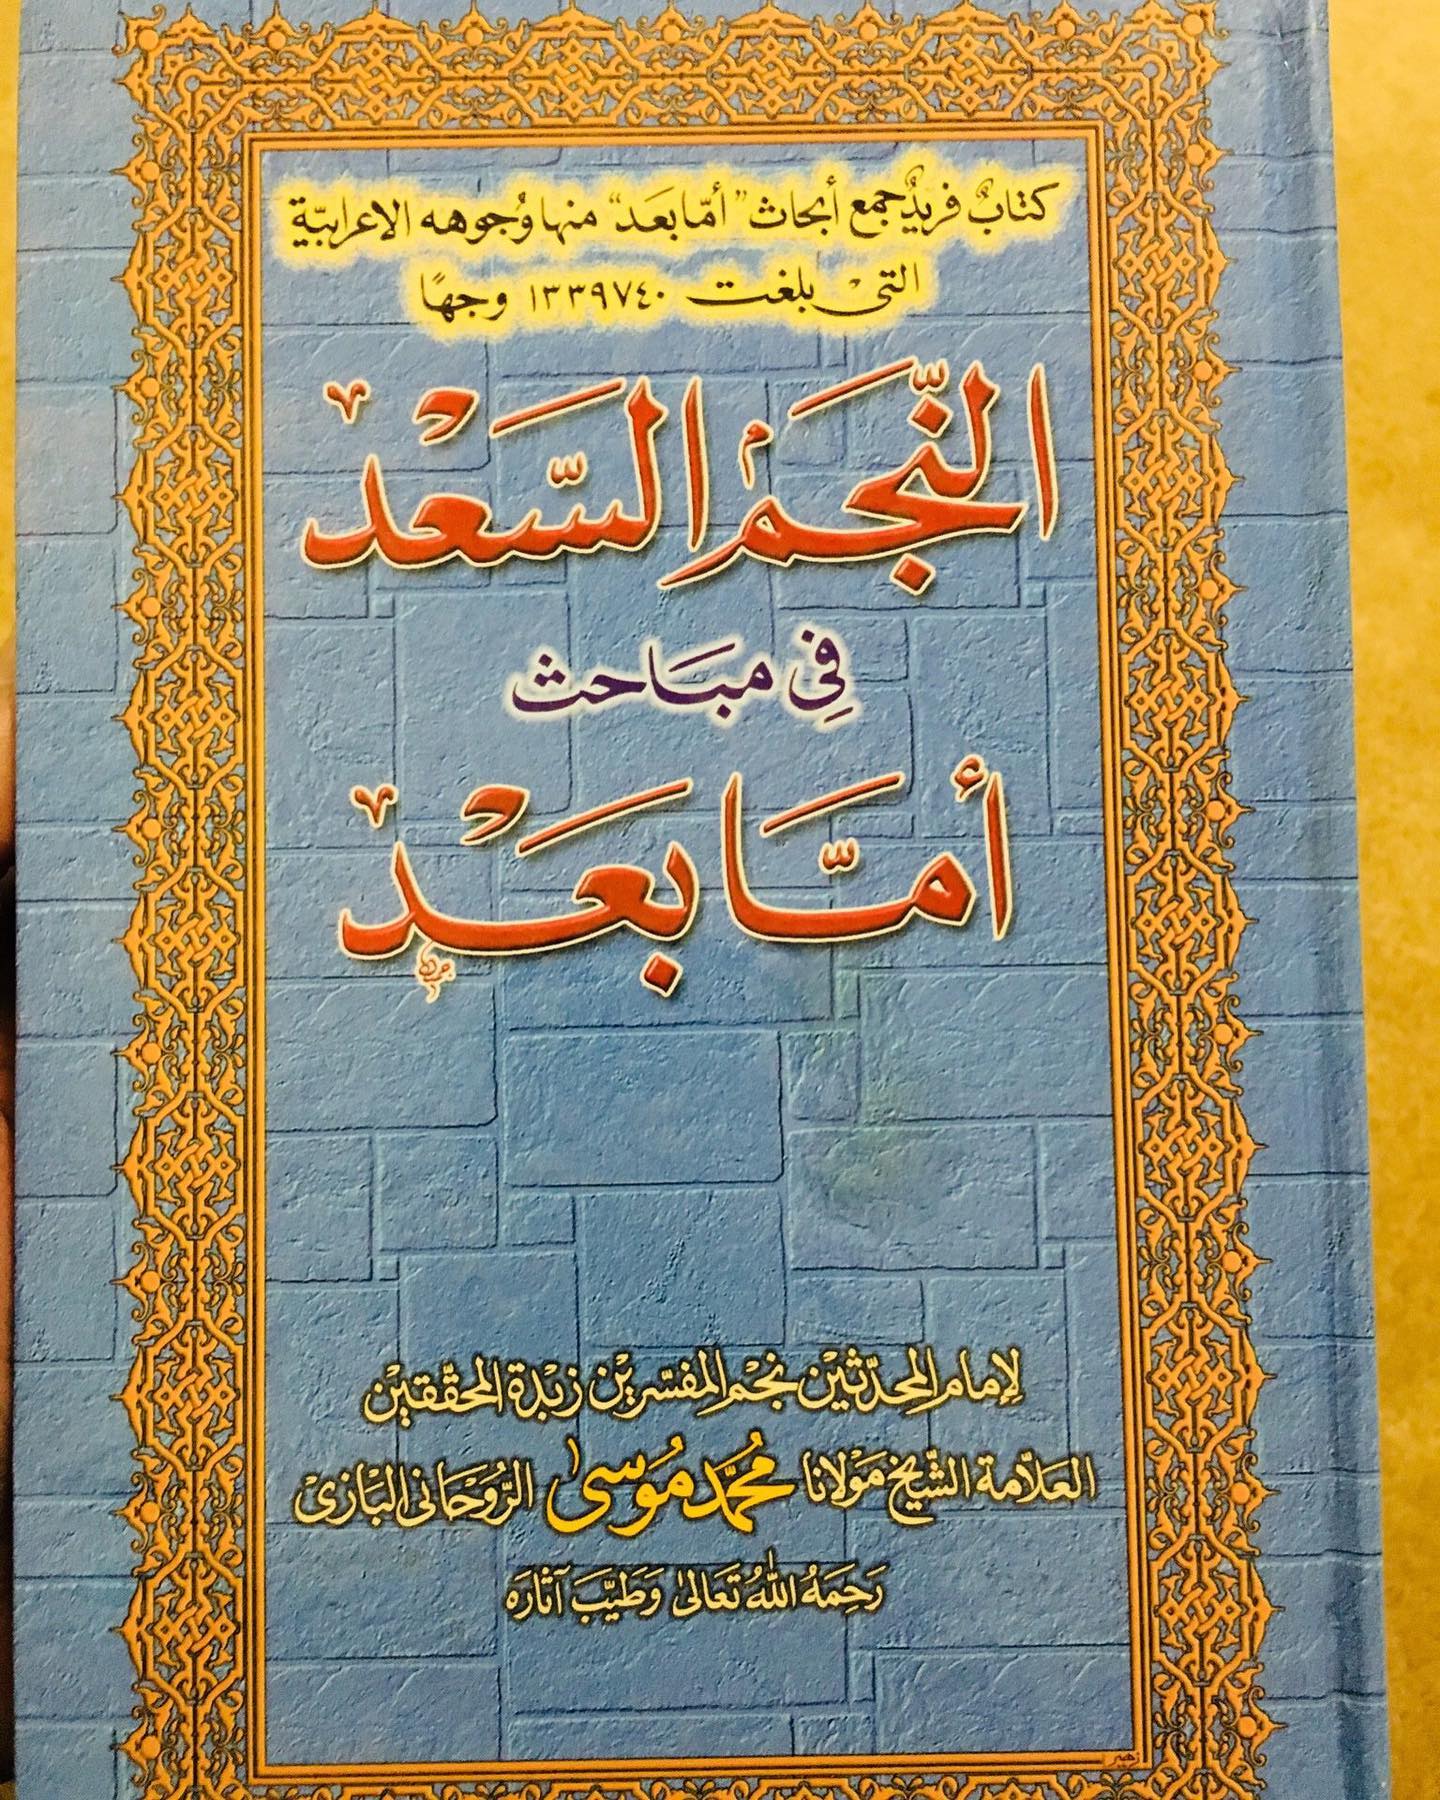 كتابٌ فريدٌ جمع أبحاث "أمّا بعد" منها وُجوهه الإعرابيّة
التي بلغت ١٣٣٩٧٤٠ وجهًا
النّجمُ السّعْد
فِي مبَاحث
أمّا بعْد
لإمام المحدّثيْن نجْم المفسّريْن زبْدة المحقّقيْن
العلاّمة الشّيخ موْلانا محُمّد مُوسىٰ الرُّوْحَاني البَازي
رَحِمَهُ اللهُ تَعَالىٰ وَطَيَّبَ آثارَه